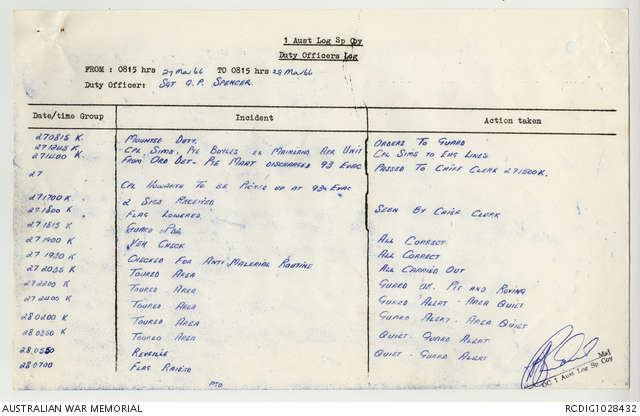 1 Aust Log Sp Coy
Duty Officers Log
FROM : 0815 hrs 27 Mar 66 TO 0815 hrs 28 Mar 66
Duty Officer: SGT O.P. SPENCER.
Date/time Group Incident Action taken
270815 K MOUNTED DUTY. ORDERS TO GUARD
271245 K CPL SIMS, PTE BOYLES EX MAINLAND HQR UNIT CPL SIMS TO ENG LINES
271400 K FROM ORD DET- PTE MORT DISCHARGED 93 EVAC PASSED TO CHIEF CLERK 271500K.
27 CPL HOWARTH TO BE PICKED UP AT 93RD EVAC
271700 K 2 SIGS RECEIVED SEEN BY CHIEF CLERK
271800 K FLAG LOWERED
271815 K GUARD PDE ALL CORRECT
271900 K VEH CHECK ALL CORRECT
271930 K CHECKED FOR ANTI MALERIAL ROUTINE ALL CARRIED OUT
272035 K TOURED AREA GUARD OK. PIT AND ROVING
272200 K TOURED AREA GUARD ALERT - AREA QUIET
272400 K TOURED AREA GUARD ALERT - AREA QUIET
280200 K TOURED AREA QUIET - GUARD ALERT
280350 K TOURED AREA QUIET - GUARD ALERT
280530 REVEILLE
280700 FLAG RAISED
PTO
Maj
OC 1 Aust Log Sp Coy
AUSTRALIAN WAR MEMORIAL RCDIG1028432